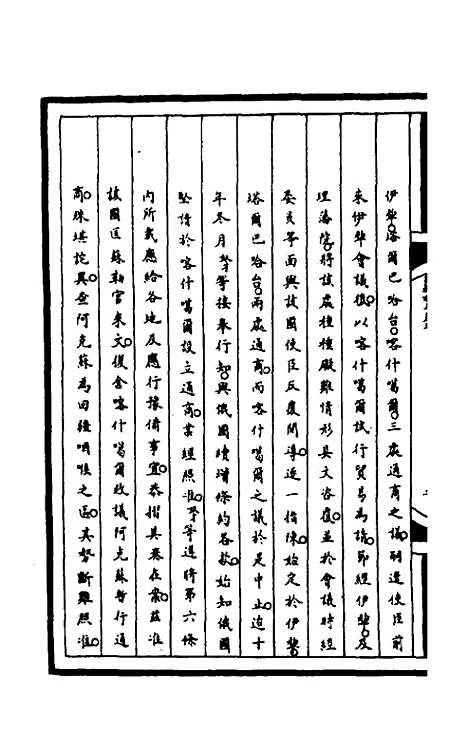 伊犂。塔爾巴哈台。喀什噶爾。三處通商之議。嗣遣使臣前
來伊犂會議。復以喀什噶爾試行貿易爲議。節經伊犂。及
理藩院。將該處種種礙難情形具文咨覆。並於會議時經
委員等面與該國使臣反復開導。逐一指陳。始定於伊犂。
塔爾巴哈台。兩處通商。而喀什噶爾之議於是中止。迨十
年冬月。奴才等接奉行知。與俄國續增條約各款。始知俄國
堅請於喀什噶爾設立通商。業經照准。奴才等遵將第六條
內所載應給各地及應行豫備事宜。恭摺具奏在案。茲准
該國匡蘇勒官來文。復舍喀什噶爾改議阿克蘇暫行通
商。殊堪詫異。查阿克蘇爲回疆咽喉之區。其勢斷難照准。